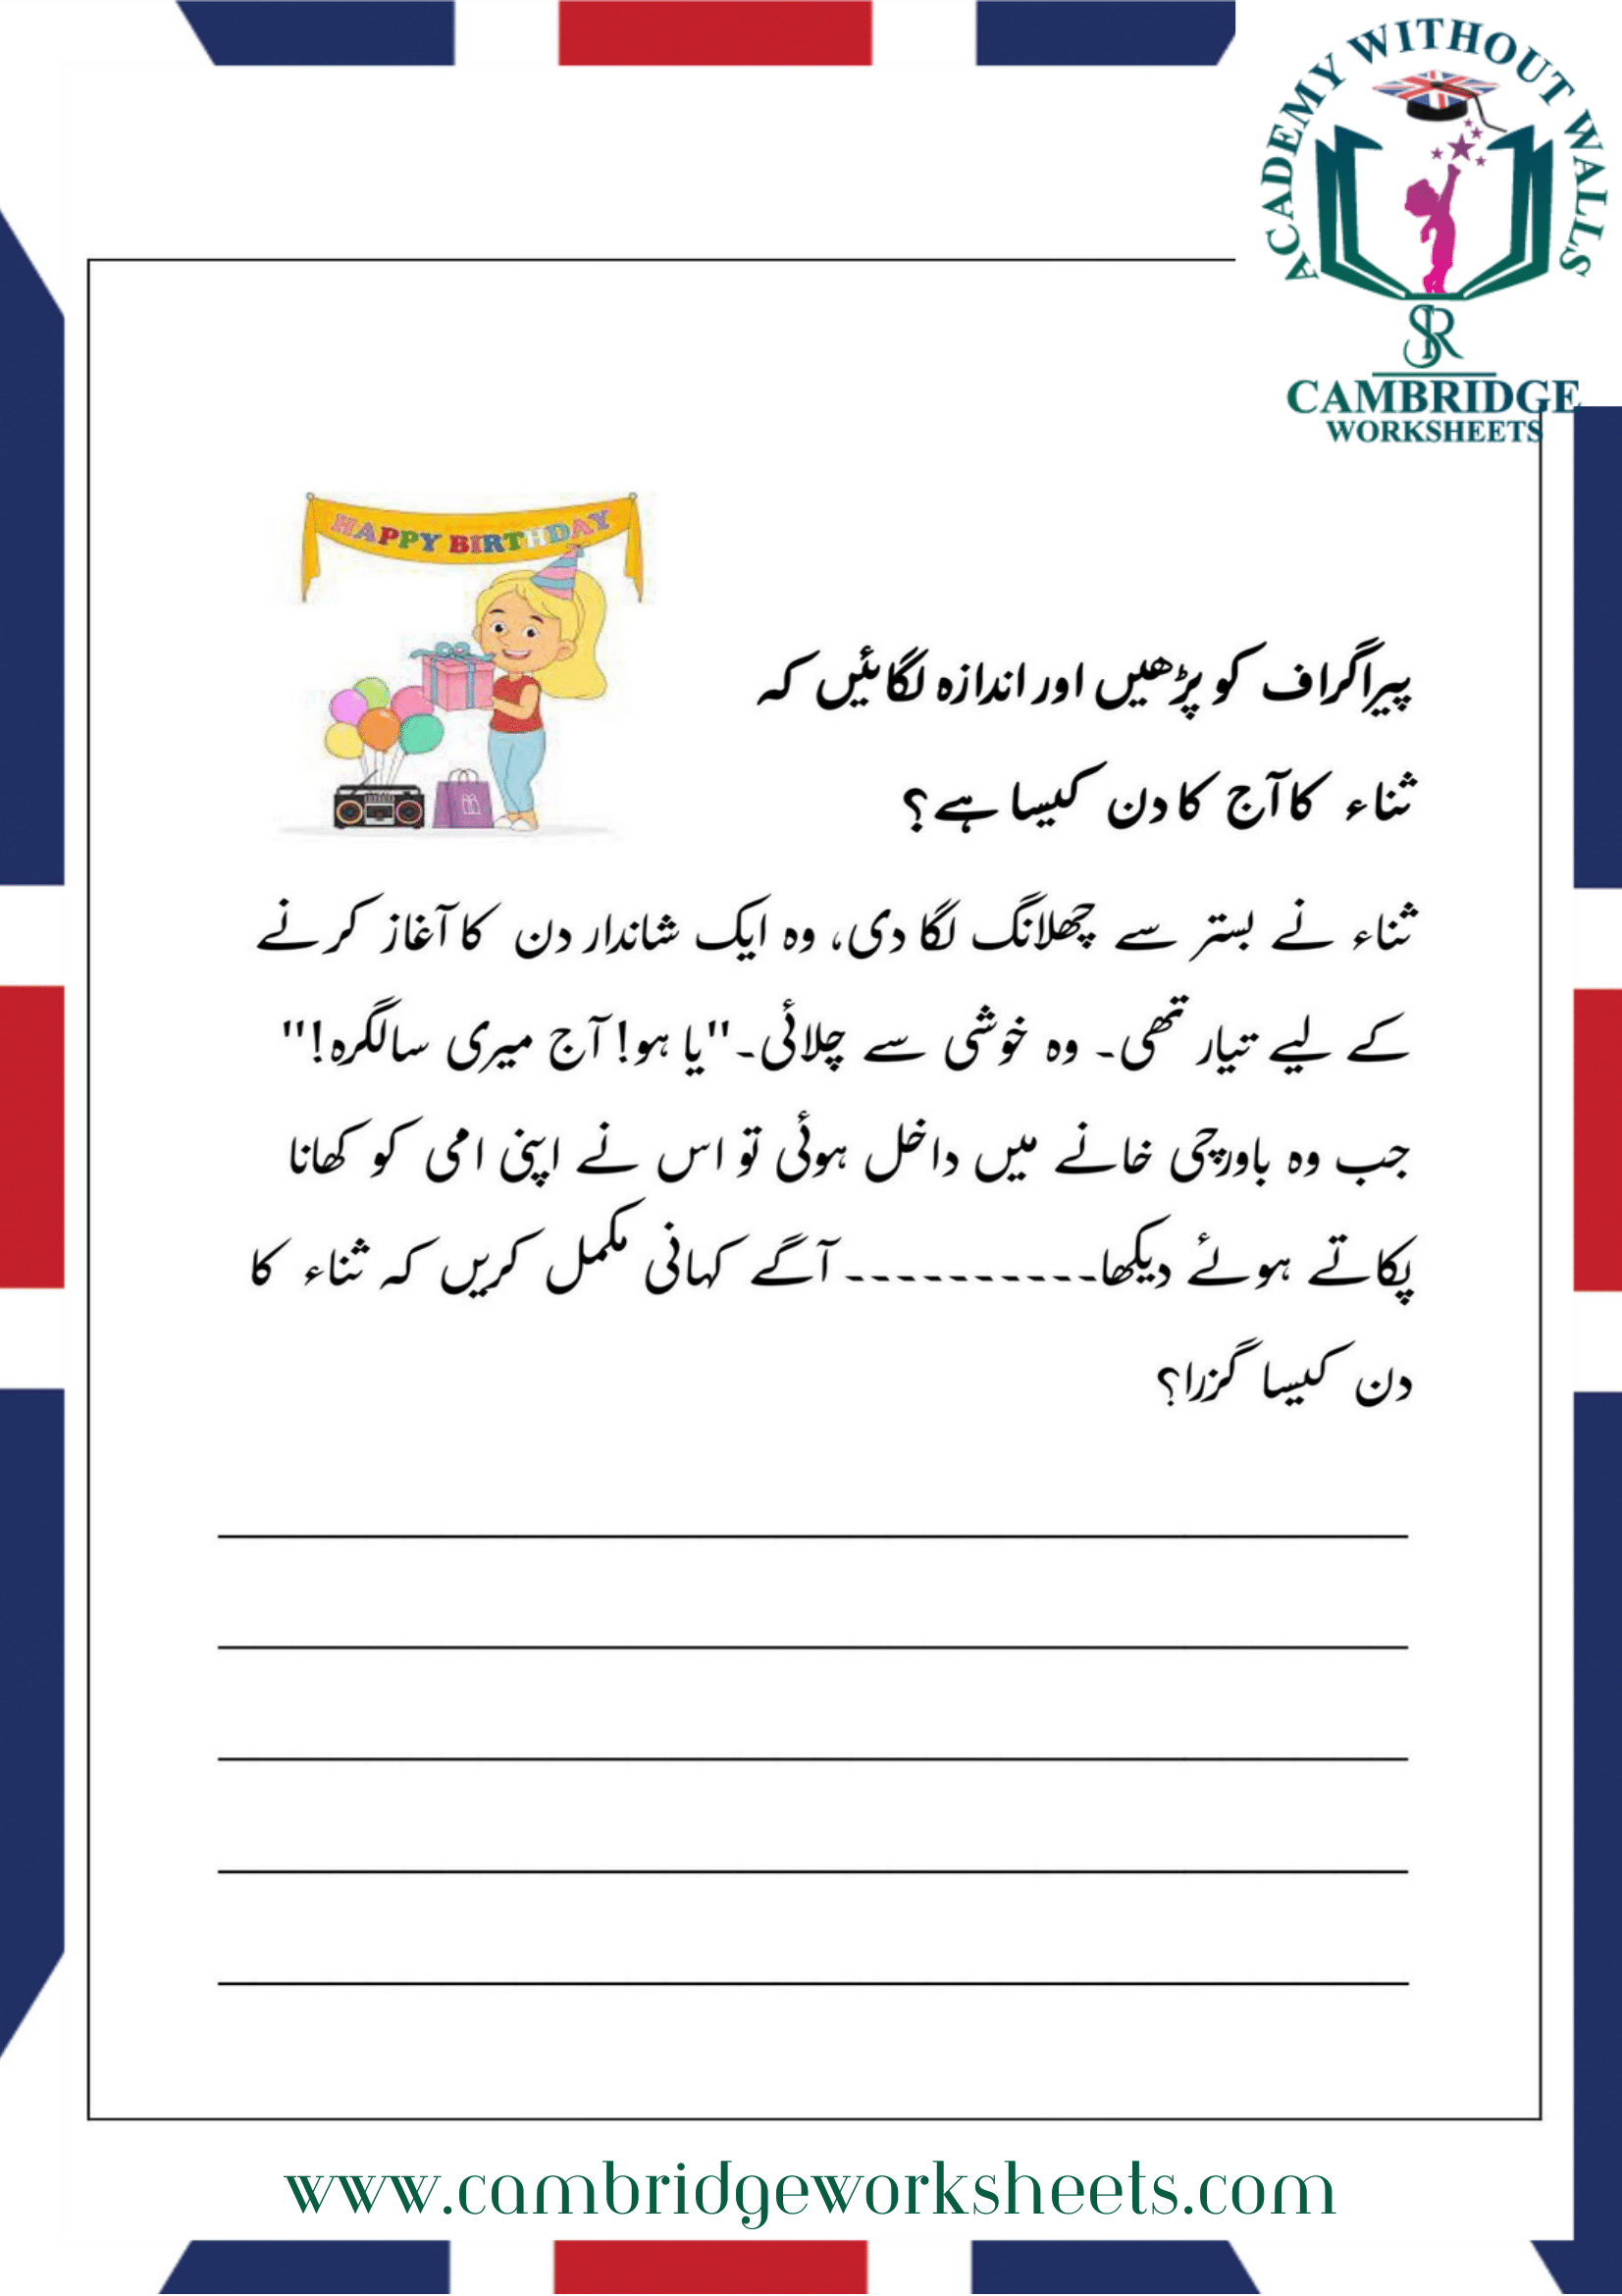 ACADEMY WITHOUT WALLS
SR
CAMBRIDGE
WORKSHEETS
HAPPY BIRTHDAY
پیراگراف کو پڑھیں اور اندازہ لگائیں کہ
ثناء کا آج کا دن کیسا ہے؟
ثناء نے بستر سے چھلانگ لگا دی، وہ ایک شاندار دن کا آغاز کرنے
کے لیے تیار تھی۔ وہ خوشی سے چلائی۔"یا ہو! آج میری سالگرہ!"
جب وہ باورچی خانے میں داخل ہوئی تو اس نے اپنی امی کو کھانا
پکاتے ہوئے دیکھا۔۔۔۔۔۔۔۔۔۔ آگے کہانی مکمل کریں کہ ثناء کا
دن کیسا گزرا؟
www.cambridgeworksheets.com